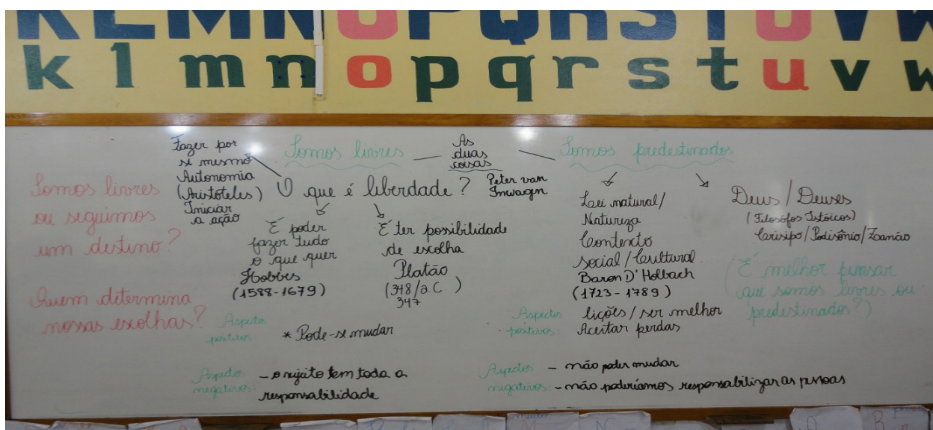 K L M N O P Q R S T U V W
k l m n o p q r s t u v w
Somos livres
ou seguimos
um destino?
Quem determina
nossas escolhas?
Fazer por
si mesmo
Autonomia
(Aristóteles)
Iniciar
a ação
Somos livres
As
duas
coisas
Peter van
Inwagn
Somos predestinados
O que é liberdade?
É poder
fazer tudo
o que quer
Hobbes
(1588-1679)
É ter possibilidade
de escolha
Platão
(348/a.C)
347
Aspectos
positivos:
* Pode-se mudar
Aspectos
negativos:
- o sujeito tem toda a
responsabilidade
Lei natural/
Natureza
Contexto
social/Cultural
Baron D'Holbach
(1723-1789)
Deus/Deuses
(Filósofos Estóicos)
Crisipo/
(É melhor pensar
que somos livres ou
predestinados?)
Aspectos
positivos:
lições/ser melhor
Aceitar perdas
Aspectos
negativos:
- não poder mudar
- não poderíamos responsabilizar as pessoas